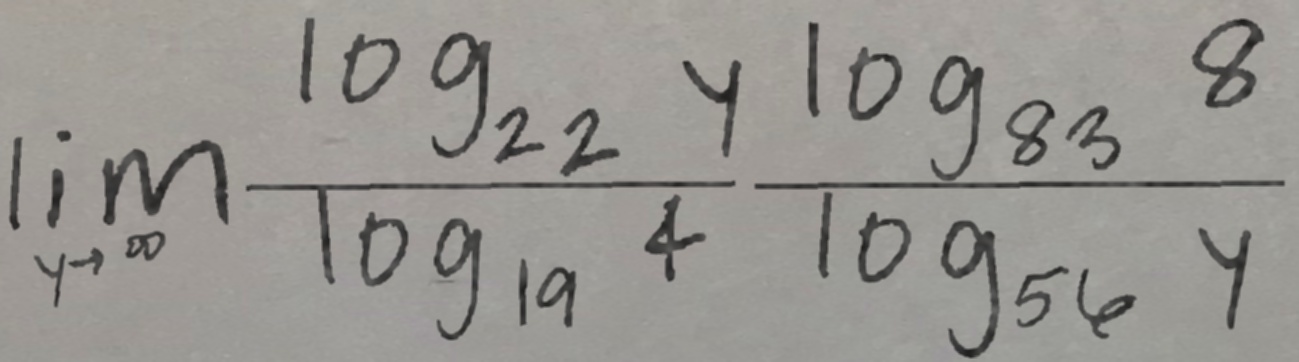 \lim_{y \to \infty} \frac{\log_{22} y}{\log_{19} 4} \frac{\log_{83} 8}{\log_{56} y}